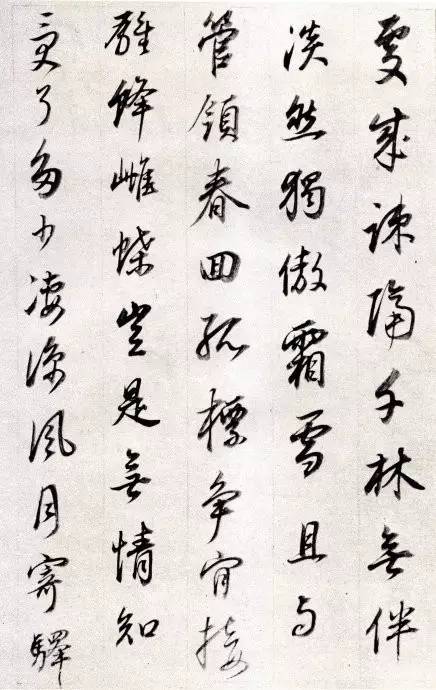 處成疎隔千林無伴
淡然獨傲霜雪且与
管領春回孤標争肯接
雄蜂雌蝶豈是無情知
受了多少淒涼風月寄驛